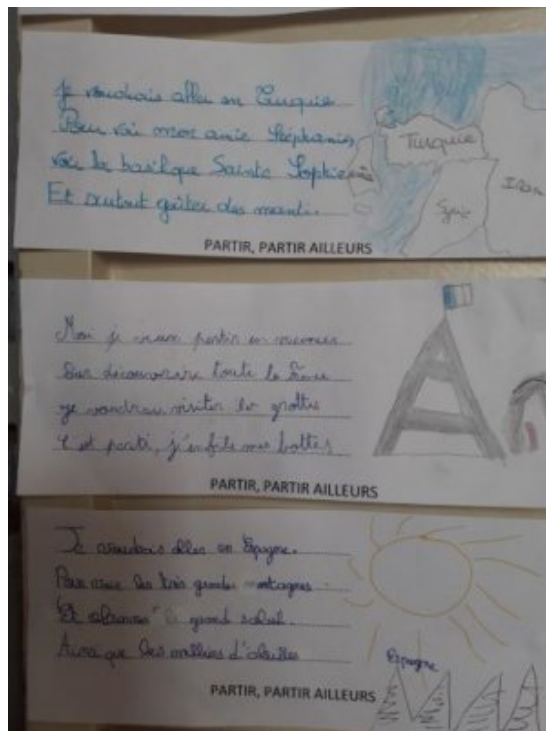 Je voudrais aller en Turquie
Pour voir mon amie Stéphanie
voir la basilique Sainte Sophie
Et surtout goûter des manti.
Turquie
Iran
Syrie
PARTIR, PARTIR AILLEURS
Moi je veux partir en vacances
toute la France
Je voudrais visiter les grottes
C'est parti, j'enfile mes bottes
PARTIR, PARTIR AILLEURS
Je voudrais aller en Espagne.
Pour les très grandes montagnes
Et grand soleil.
Ainsi que des milliers d'abeilles
Espagne
PARTIR, PARTIR AILLEURS